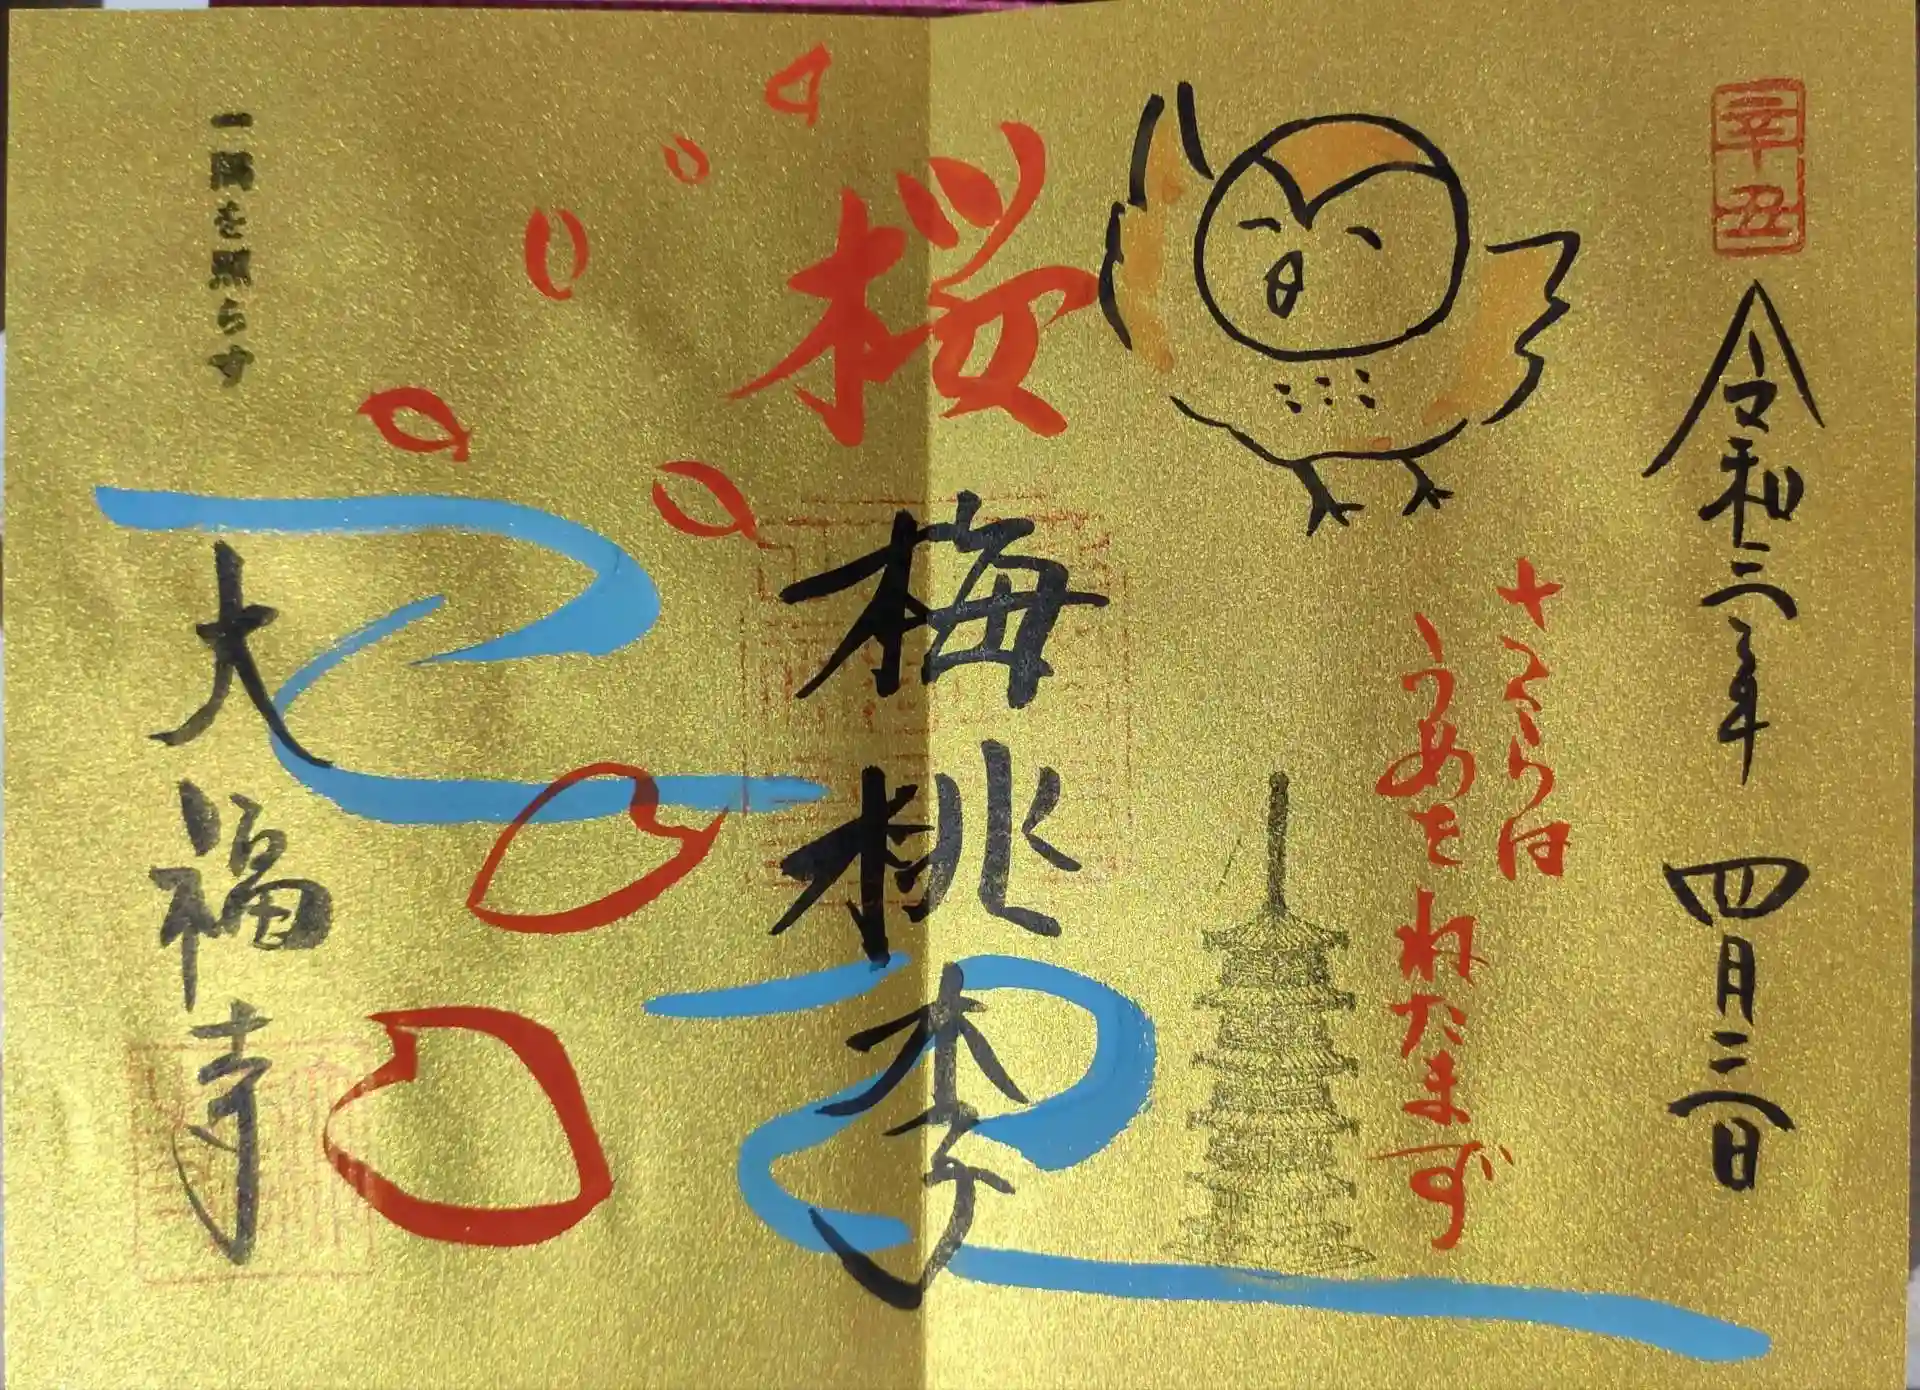 辛丑
令和三年四月三日
さくらは
うめをねたまず
桜梅桃李
一隅を照らす
大福寺